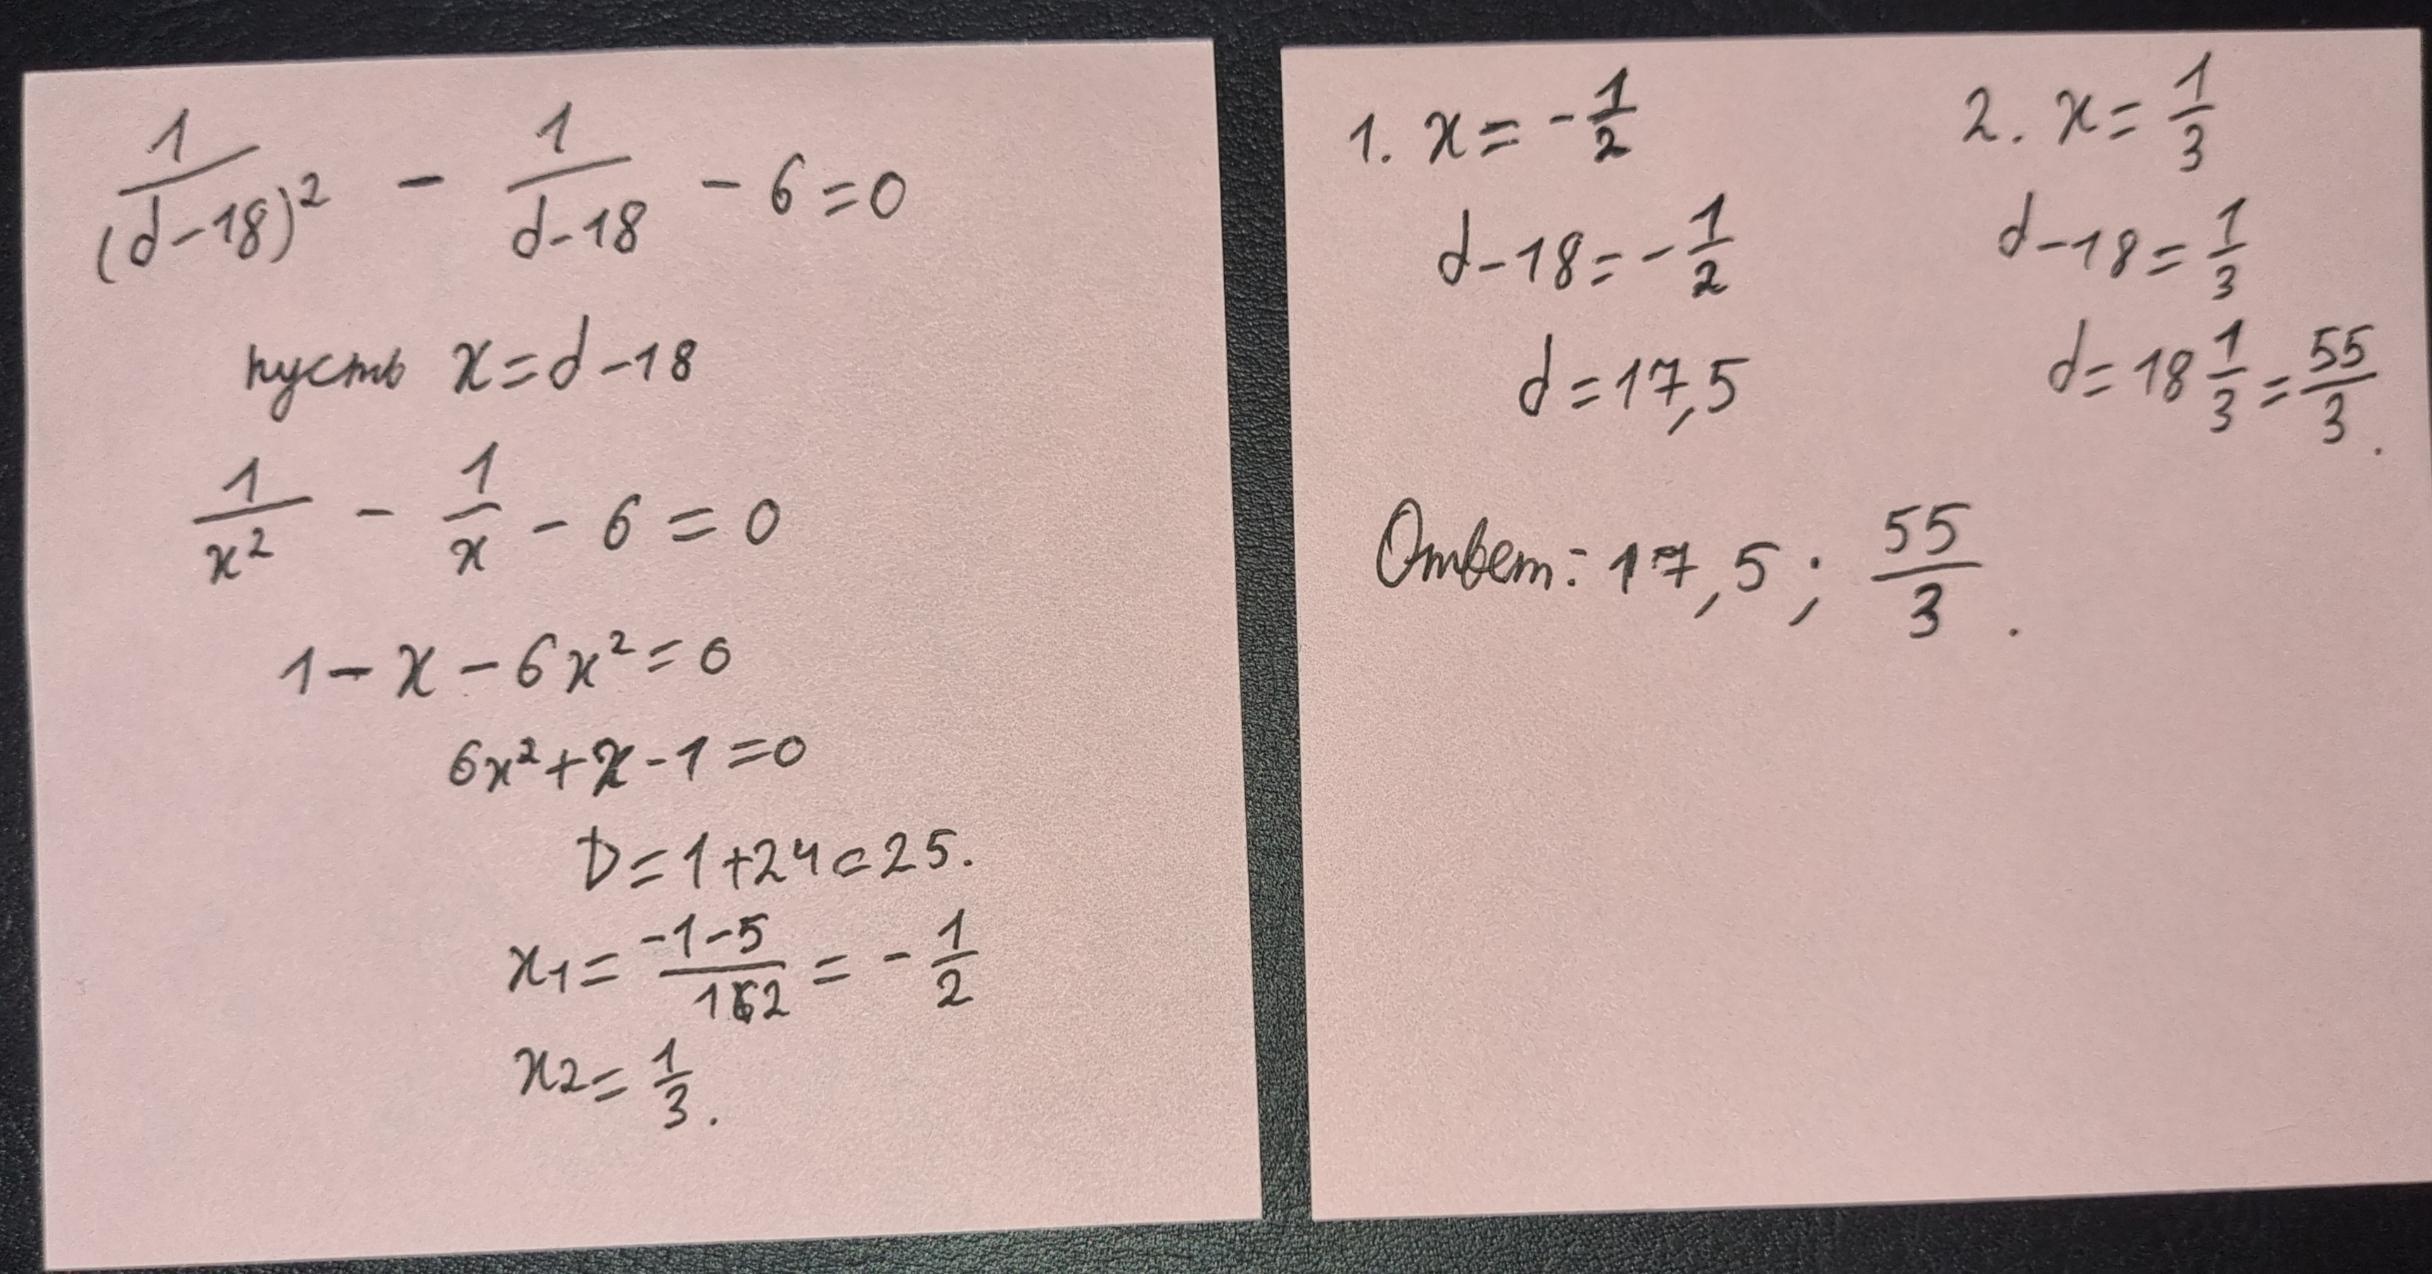 1/(d-18)² - 1/(d-18) - 6 = 0
пусть x = d - 18
1/x² - 1/x - 6 = 0
1 - x - 6x² = 0
6x² + x - 1 = 0
D = 1 + 24 = 25.
x1 = (-1-5)/12 = -1/2
x2 = 1/3.
1. x = -1/2
d - 18 = -1/2
d = 17,5
2. x = 1/3
d - 18 = 1/3
d = 18 1/3 = 55/3.
Ответ: 17,5; 55/3.